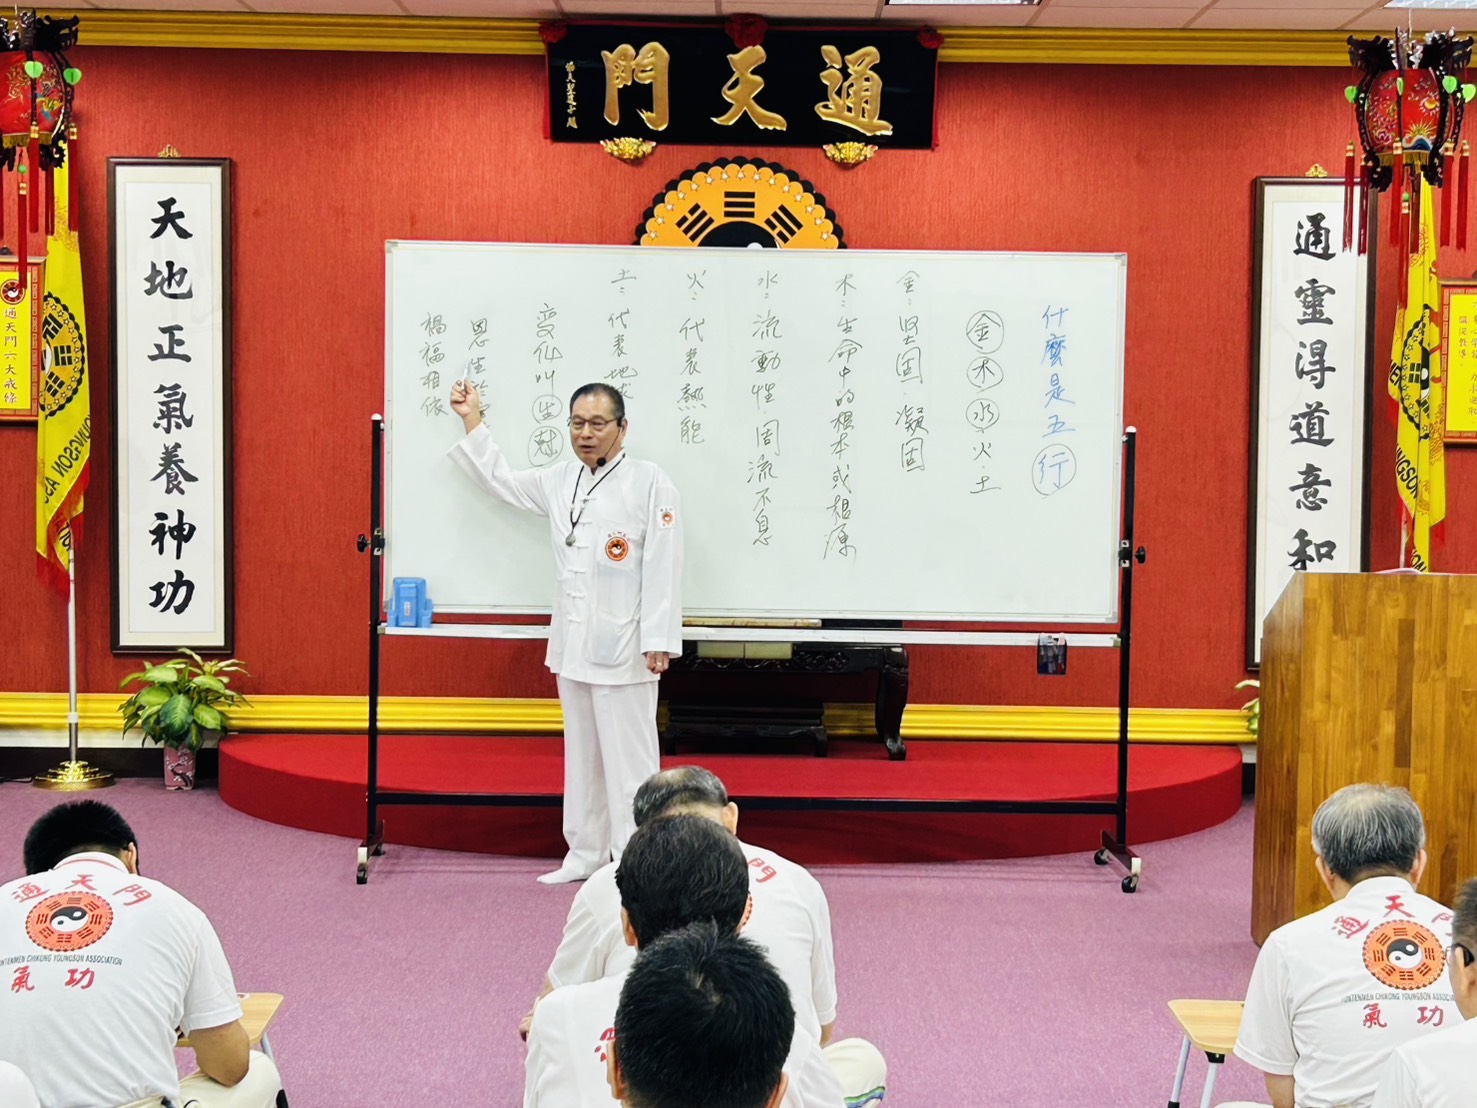 通天門
通靈得道意和
天地正氣養神功
什麼是五行
金、木、水、火、土
金：坚固、凝固
木：生命中的根本或根源
水：流動性、周流不息
火：代表熱能
土：代表地球
变化叫生剋
恩生於
禍福相依
通天門六大戒條
通天門
ONTENMEN CHIKUNG YOUNGSON ASSOCIATION
氣功
通天門
ONTENMEN CHIKUNG YOUNGSON ASSOCIA
氣功
門